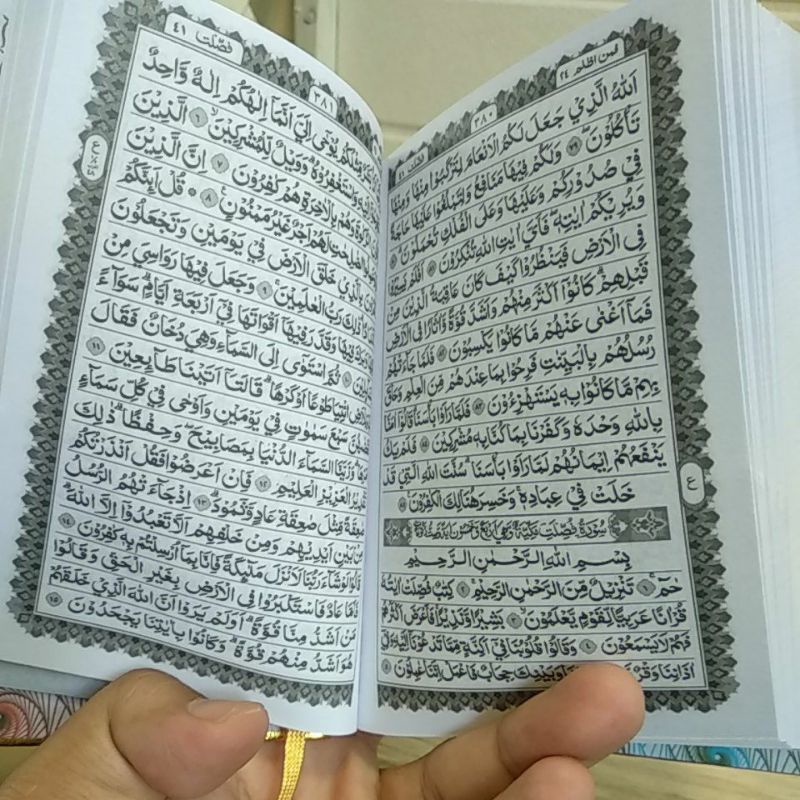 فمن اظلم ٢٤
٣٨٠
فصّلت ٤١
اَللّٰهُ الَّذِيْ جَعَلَ لَكُمُ الْاَنْعَامَ لِتَرْكَبُوْا مِنْهَا وَمِنْهَا
تَأْكُلُوْنَ ٧٩ وَلَكُمْ فِيْهَا مَنَافِعُ وَلِتَبْلُغُوْا عَلَيْهَا حَاجَةً
فِيْ صُدُوْرِكُمْ وَعَلَيْهَا وَعَلَى الْفُلْكِ تُحْمَلُوْنَ
وَيُرِيْكُمْ اٰيٰتِهٖ فَاَيَّ اٰيٰتِ اللّٰهِ تُنْكِرُوْنَ ٨١ اَفَلَمْ يَسِيْرُوْا
فِى الْاَرْضِ فَيَنْظُرُوْا كَيْفَ كَانَ عَاقِبَةُ الَّذِيْنَ مِنْ
قَبْلِهِمْ كَانُوْٓا اَكْثَرَ مِنْهُمْ وَاَشَدَّ قُوَّةً وَّاٰثَارًا فِى الْاَرْضِ
فَمَآ اَغْنٰى عَنْهُمْ مَّا كَانُوْا يَكْسِبُوْنَ ٨٢ فَلَمَّا جَاۤءَتْهُمْ
رُسُلُهُمْ بِالْبَيِّنٰتِ فَرِحُوْا بِمَا عِنْدَهُمْ مِّنَ الْعِلْمِ وَحَاقَ
بِهِمْ مَّا كَانُوْا بِهٖ يَسْتَهْزِءُوْنَ ٨٣ فَلَمَّا رَاَوْا بَأْسَنَا قَالُوْٓا اٰمَنَّا
بِاللّٰهِ وَحْدَهٗ وَكَفَرْنَا بِمَا كُنَّا بِهٖ مُشْرِكِيْنَ ٨٤ فَلَمْ يَكُ
يَنْفَعُهُمْ اِيْمَانُهُمْ لَمَّا رَاَوْا بَأْسَنَا سُنَّتَ اللّٰهِ الَّتِيْ قَدْ
خَلَتْ فِيْ عِبَادِهٖ وَخَسِرَ هُنَالِكَ الْكٰفِرُوْنَ ٨٥
سُوْرَةُ فُصِّلَتْ مَكِّيَّةٌ وَّهِيَ اَرْبَعٌ وَّخَمْسُوْنَ اٰيَةً
بِسْمِ اللّٰهِ الرَّحْمٰنِ الرَّحِيْمِ
حٰمۤ ١ تَنْزِيْلٌ مِّنَ الرَّحْمٰنِ الرَّحِيْمِ ٢ كِتٰبٌ فُصِّلَتْ اٰيٰتُهٗ
قُرْاٰنًا عَرَبِيًّا لِّقَوْمٍ يَّعْلَمُوْنَ ٣ بَشِيْرًا وَّنَذِيْرًا فَاَعْرَضَ اَكْثَرُهُمْ
فَهُمْ لَا يَسْمَعُوْنَ ٤ وَقَالُوْا قُلُوْبُنَا فِيْٓ اَكِنَّةٍ مِّمَّا تَدْعُوْنَآ اِلَيْهِ وَفِيْٓ
اٰذَانِنَا وَقْرٌ وَبَيْنِكَ حِجَابٌ فَاعْمَلْ اِنَّنَا عٰمِلُوْنَ ٥
ع
فصّلت ٤١
٣٨١
مِّثْلُكُمْ يُوْحٰٓى اِلَيَّ اَنَّمَآ اِلٰهُكُمْ اِلٰهٌ وَّاحِدٌ
اِلَيْهِ وَاسْتَغْفِرُوْهُ وَوَيْلٌ لِّلْمُشْرِكِيْنَ ٦ الَّذِيْنَ
الزَّكٰوةَ وَهُمْ بِالْاٰخِرَةِ هُمْ كٰفِرُوْنَ ٧ اِنَّ الَّذِيْنَ
الصّٰلِحٰتِ لَهُمْ اَجْرٌ غَيْرُ مَمْنُوْنٍ ٨ قُلْ اَىِٕنَّكُمْ
بِالَّذِيْ خَلَقَ الْاَرْضَ فِيْ يَوْمَيْنِ وَتَجْعَلُوْنَ
ذٰلِكَ رَبُّ الْعٰلَمِيْنَ ٩ وَجَعَلَ فِيْهَا رَوَاسِيَ مِنْ
فِيْهَا وَقَدَّرَ فِيْهَآ اَقْوَاتَهَا فِيْٓ اَرْبَعَةِ اَيَّامٍ سَوَاۤءً
ثُمَّ اسْتَوٰٓى اِلَى السَّمَاۤءِ وَهِيَ دُخَانٌ فَقَالَ
ائْتِيَا طَوْعًا اَوْ كَرْهًا قَالَتَآ اَتَيْنَا طَاۤىِٕعِيْنَ ١١
سَبْعَ سَمٰوَاتٍ فِيْ يَوْمَيْنِ وَاَوْحٰى فِيْ كُلِّ سَمَاۤءٍ
وَزَيَّنَّا السَّمَاۤءَ الدُّنْيَا بِمَصَابِيْحَ وَحِفْظًا ذٰلِكَ
تَقْدِيْرُ الْعَزِيْزِ الْعَلِيْمِ ١٢ فَاِنْ اَعْرَضُوْا فَقُلْ اَنْذَرْتُكُمْ
صٰعِقَةً مِّثْلَ صٰعِقَةِ عَادٍ وَّثَمُوْدَ ١٣ اِذْ جَاۤءَتْهُمُ الرُّسُلُ
مِنْ بَيْنِ اَيْدِيْهِمْ وَمِنْ خَلْفِهِمْ اَلَّا تَعْبُدُوْٓا اِلَّا اللّٰهَ
قَالُوْا لَوْ شَاۤءَ رَبُّنَا لَاَنْزَلَ مَلٰۤىِٕكَةً فَاِنَّا بِمَآ اُرْسِلْتُمْ بِهٖ كٰفِرُوْنَ ١٤
فَاَمَّا عَادٌ فَاسْتَكْبَرُوْا فِى الْاَرْضِ بِغَيْرِ الْحَقِّ وَقَالُوْا
مَنْ اَشَدُّ مِنَّا قُوَّةً اَوَلَمْ يَرَوْا اَنَّ اللّٰهَ الَّذِيْ خَلَقَهُمْ
هُوَ اَشَدُّ مِنْهُمْ قُوَّةً وَكَانُوْا بِاٰيٰتِنَا يَجْحَدُوْنَ ١٥